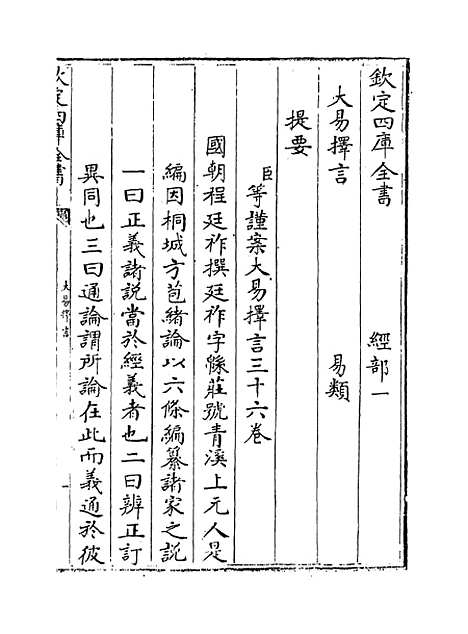 欽定四庫全書　經部一
大易擇言　易類
提要
臣等謹案大易擇言三十六卷
國朝程廷祚撰廷祚字緜莊號青溪上元人是
編因桐城方苞緒論以六條編纂諸家之說
一曰正義諸說當於經義者也二曰辨正訂
異同也三曰通論謂所論在此而義通於彼
欽定四庫全書
大易擇言
一